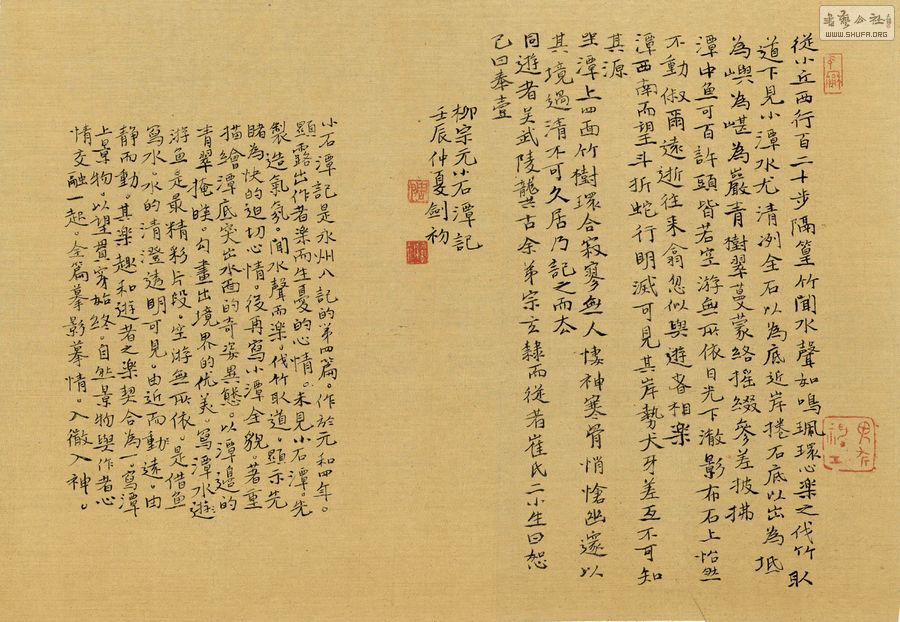 從小丘西行百二十步隔篁竹聞水聲如鳴珮環心樂之伐竹取
道下見小潭水尤清冽全石以為底近岸捲石底以出為坻
為嶼為嵁為巖青樹翠蔓蒙絡搖綴參差披拂
潭中魚可百許頭皆若空游無所依日光下澈影布石上怡然
不動俶爾遠逝往來翕忽似與遊者相樂
潭西南而望斗折蛇行明滅可見其岸勢犬牙差互不可知
其源
坐潭上四面竹樹環合寂寥無人悽神寒骨悄愴幽邃以
其境過清不可久居乃記之而去
同遊者吴武陵龔古余弟宗玄隸而從者崔氏二小生曰恕
己曰奉壹
柳宗元小石潭記
壬辰仲夏劍初
小石潭記是永州八記的第四篇。作於元和四年。
顯露出作者樂而生憂的心情。未見小石潭。先
製造氣氛。聞水聲而樂。伐竹取道。顯示先
睹為快的迫切心情。後再寫小潭全貌。著重
描繪潭底突出水面的奇姿異態。以潭邊的
青翠掩映。勾畫出境界的优美。寫潭水遊
游魚是最精彩片段。空游無所依。是借魚
寫水。水的清澄透明可見。由近而動遠。由
靜而動。其樂趣和遊者之樂契合為一。寫潭
上景物。以望貫穿始終。自然景物與作者心
情交融一起。全篇摹影摹情。入微入神。
WWW.SHUFA.ORG